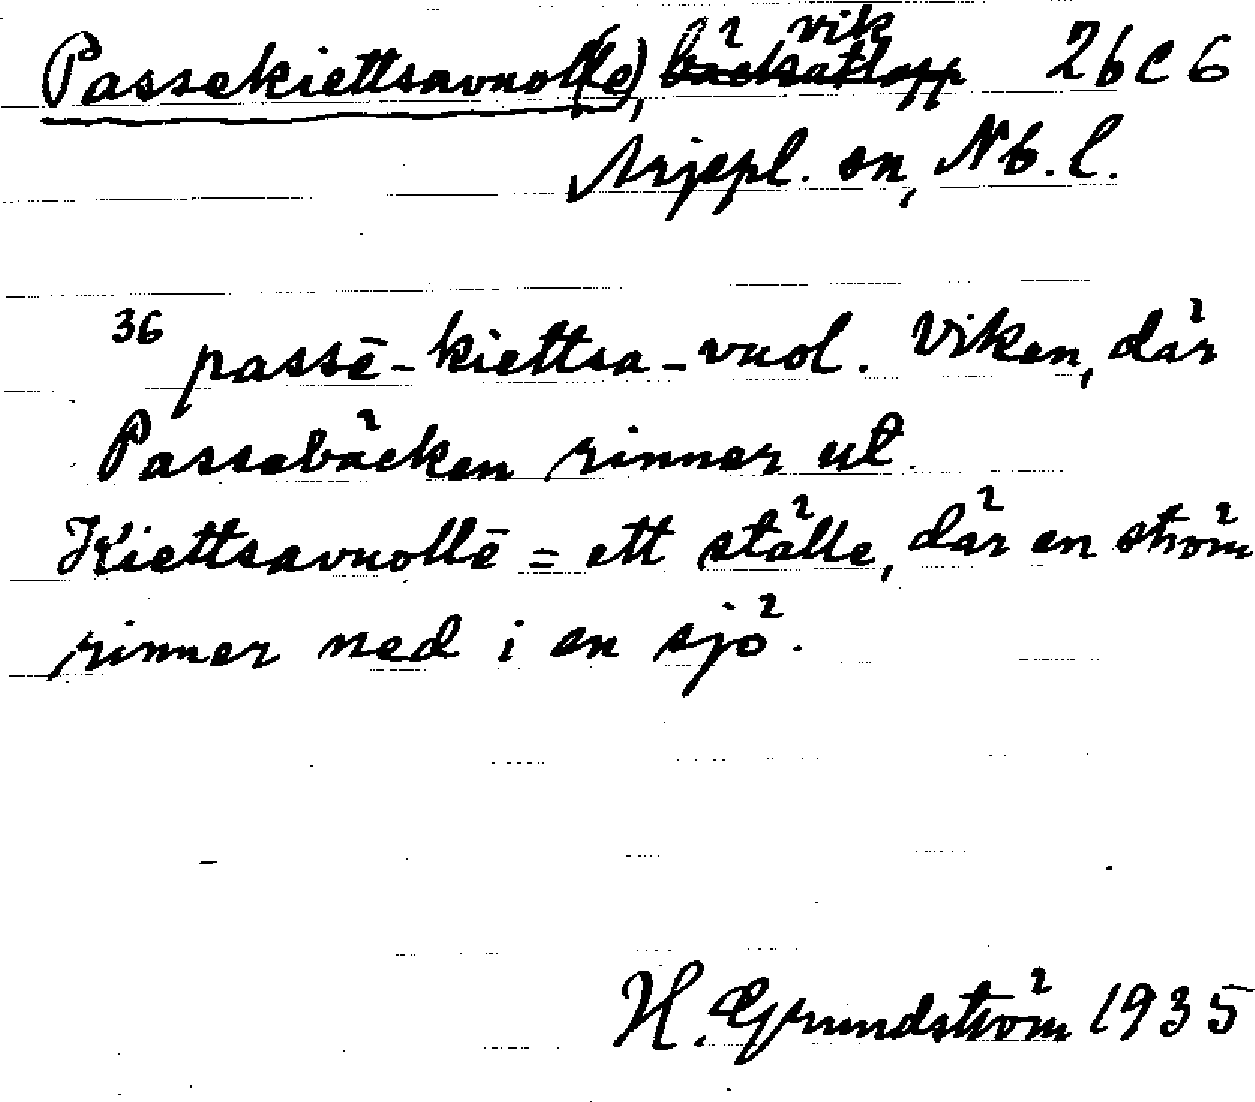 Passekiettsavuol(le), bäcksutlopp vik 26 C 6
Arjepl. sn, Nb. l.
36 passē-kiettsa-vuol. Viken, där
Passebäcken rinner ut.
Kiettsavuollē = ett ställe, där en ström
rinner ned i en sjö.
H. Grundström 1935